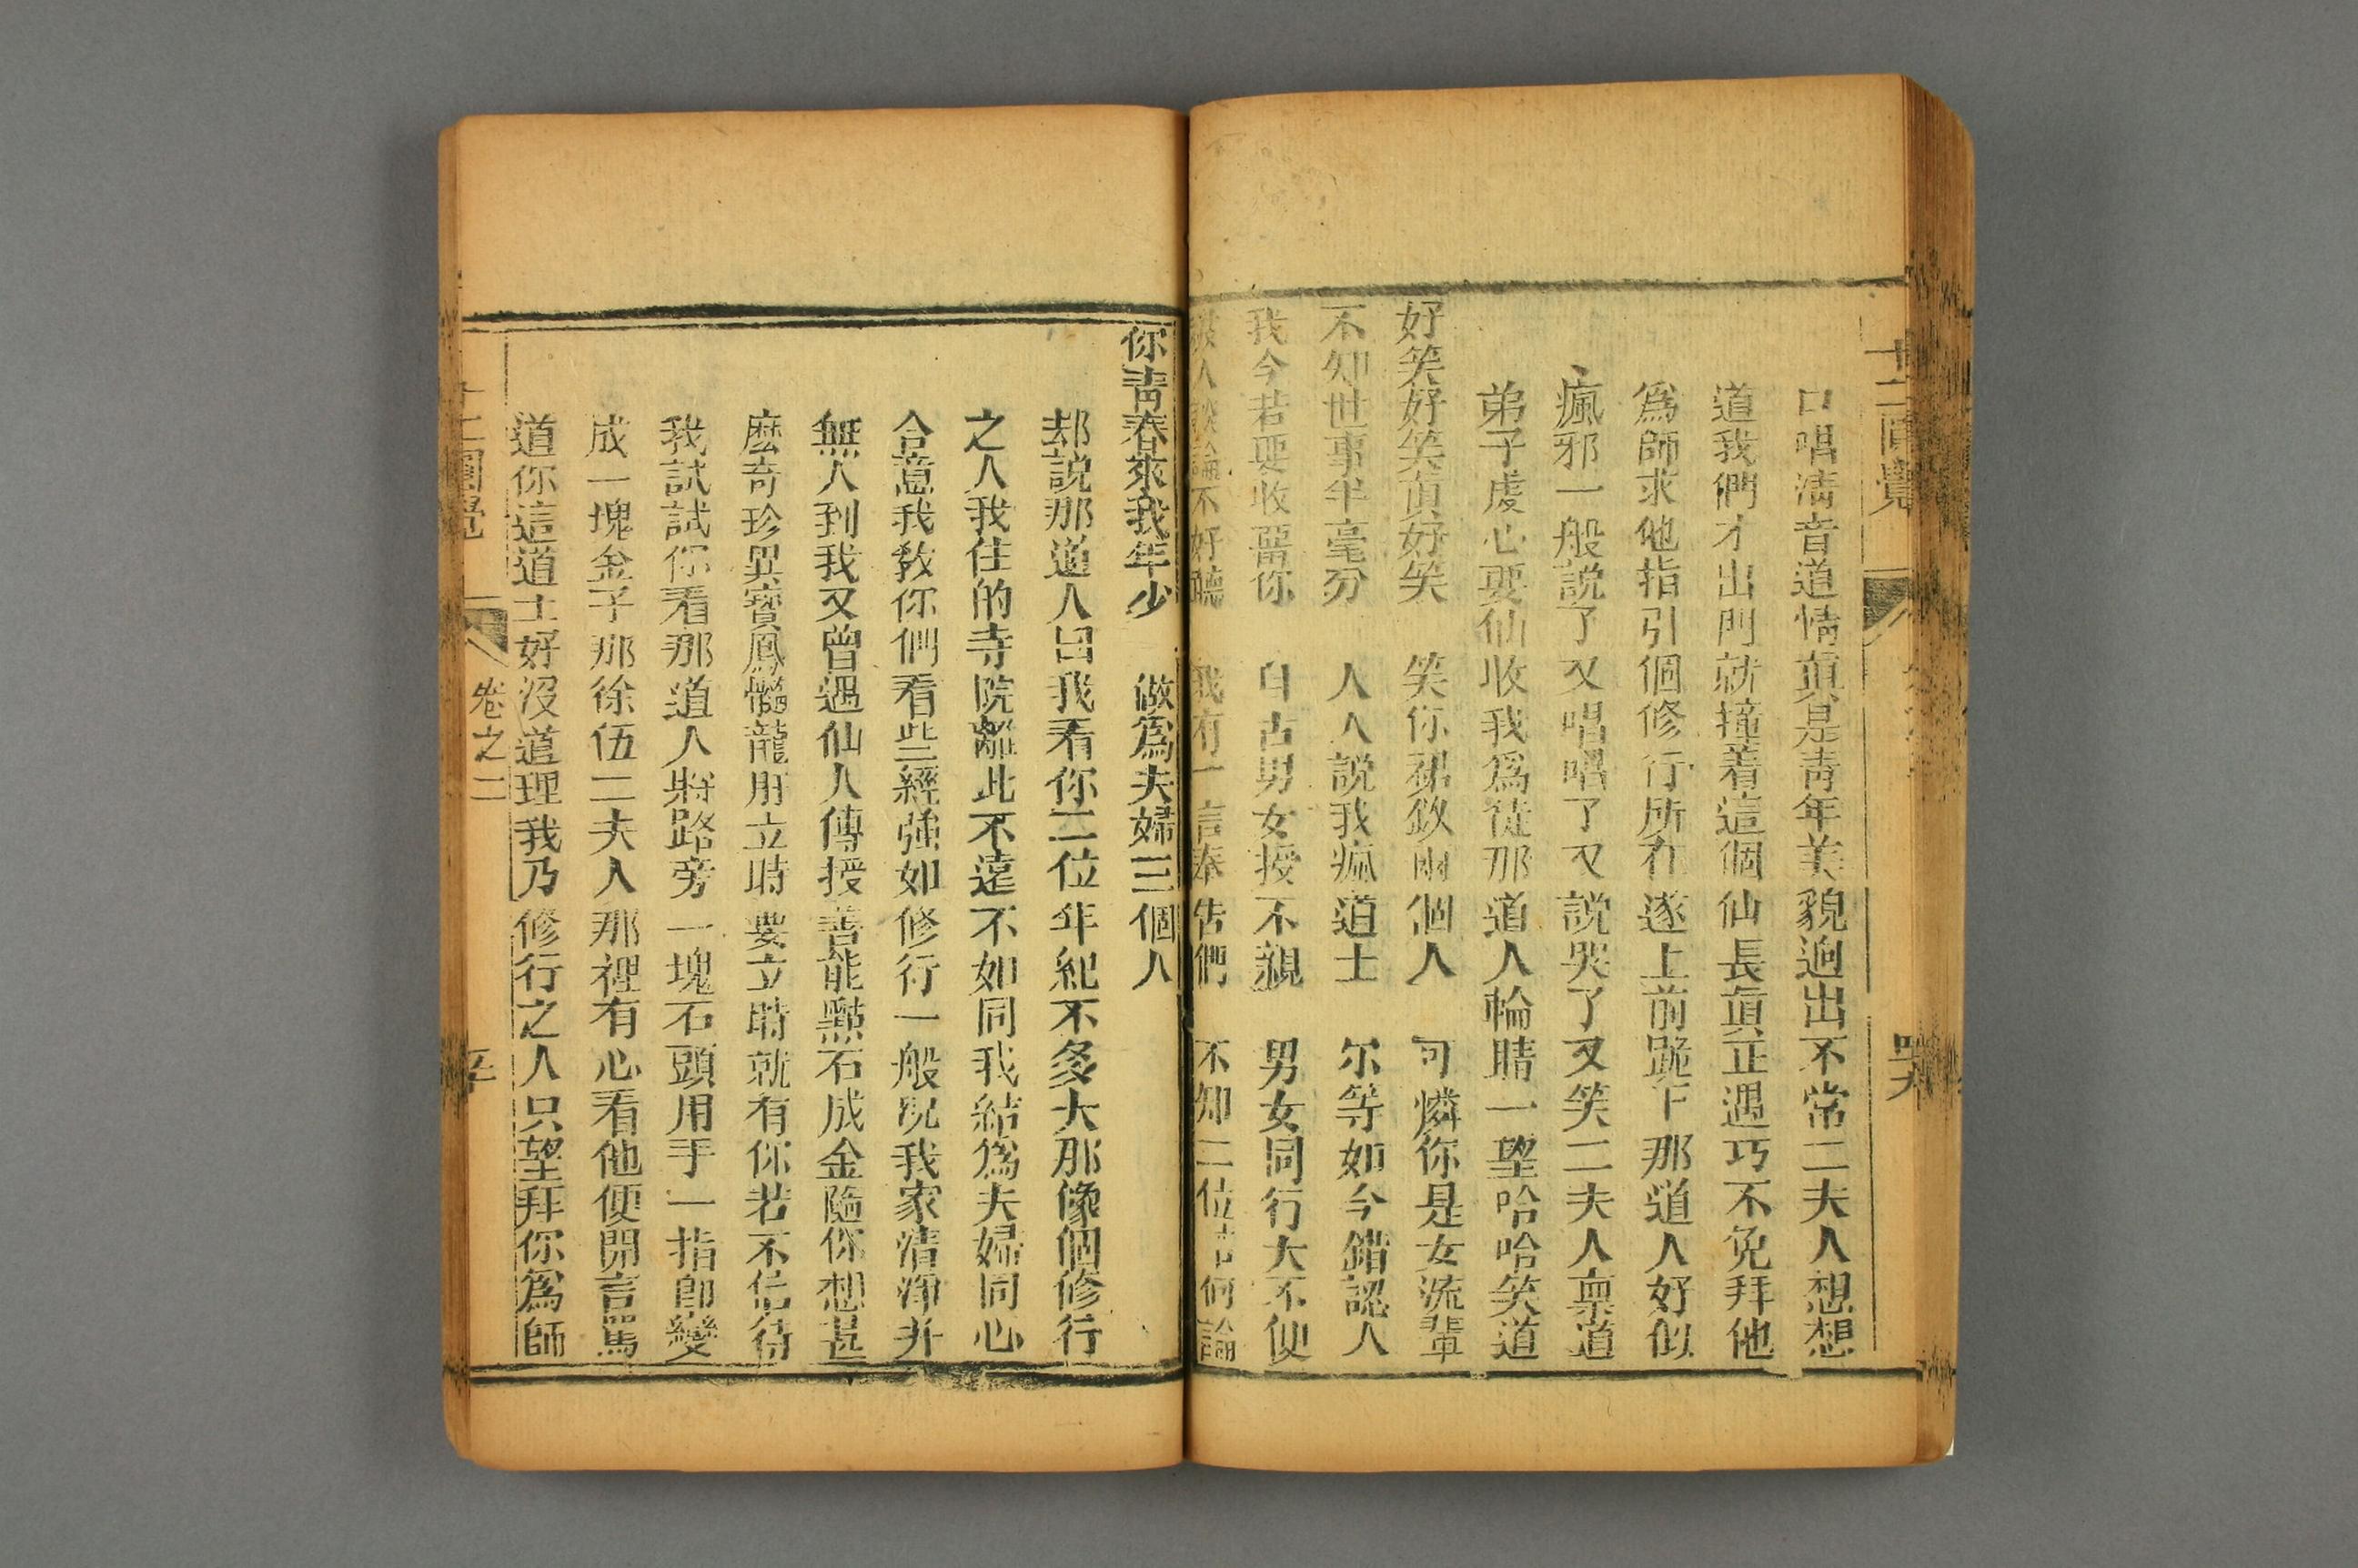 十二圓覺
口唱淸音道情眞是靑年美貌逈出不常二夫人想想
道我們才出門就撞着這個仙長眞正遇巧不免拜他
爲師求他指引個修行所在遂上前跪下那道人好似
瘋邪一般說了又唱唱了又說哭了又笑二夫人禀道
弟子虔心要仙收我爲徒那道人輪睛一望哈哈笑道
好笑好笑眞好笑 笑你裙釵兩個人 可憐你是女流輩
不知世事半毫分 人人說我瘋道士 尔等如今錯認人
我今若要收畱你 自古男女授不親 男女同行大不便
人談論不好聽 我有一言奉告們 不知二位 何論
你靑春來我年少 做爲夫婦三個人
却說那道人曰我看你二位年紀不多大那像個修行
之人我住的寺院離此不遠不如同我結爲夫婦同心
合意我敎你們看些經強如修行一般况我家清淨并
無人到我又曾遇仙人傳授善能點石成金隨你想甚
麽奇珍異寶鳳髓龍肝立時要立時就有你若不信待
我試試你看那道人將路旁一塊石頭用手一指卽變
成一塊金子那徐伍二夫人那裡有心看他便開言罵
道你這道士好沒道理我乃修行之人只望拜你爲師
十二圓覺 卷之二